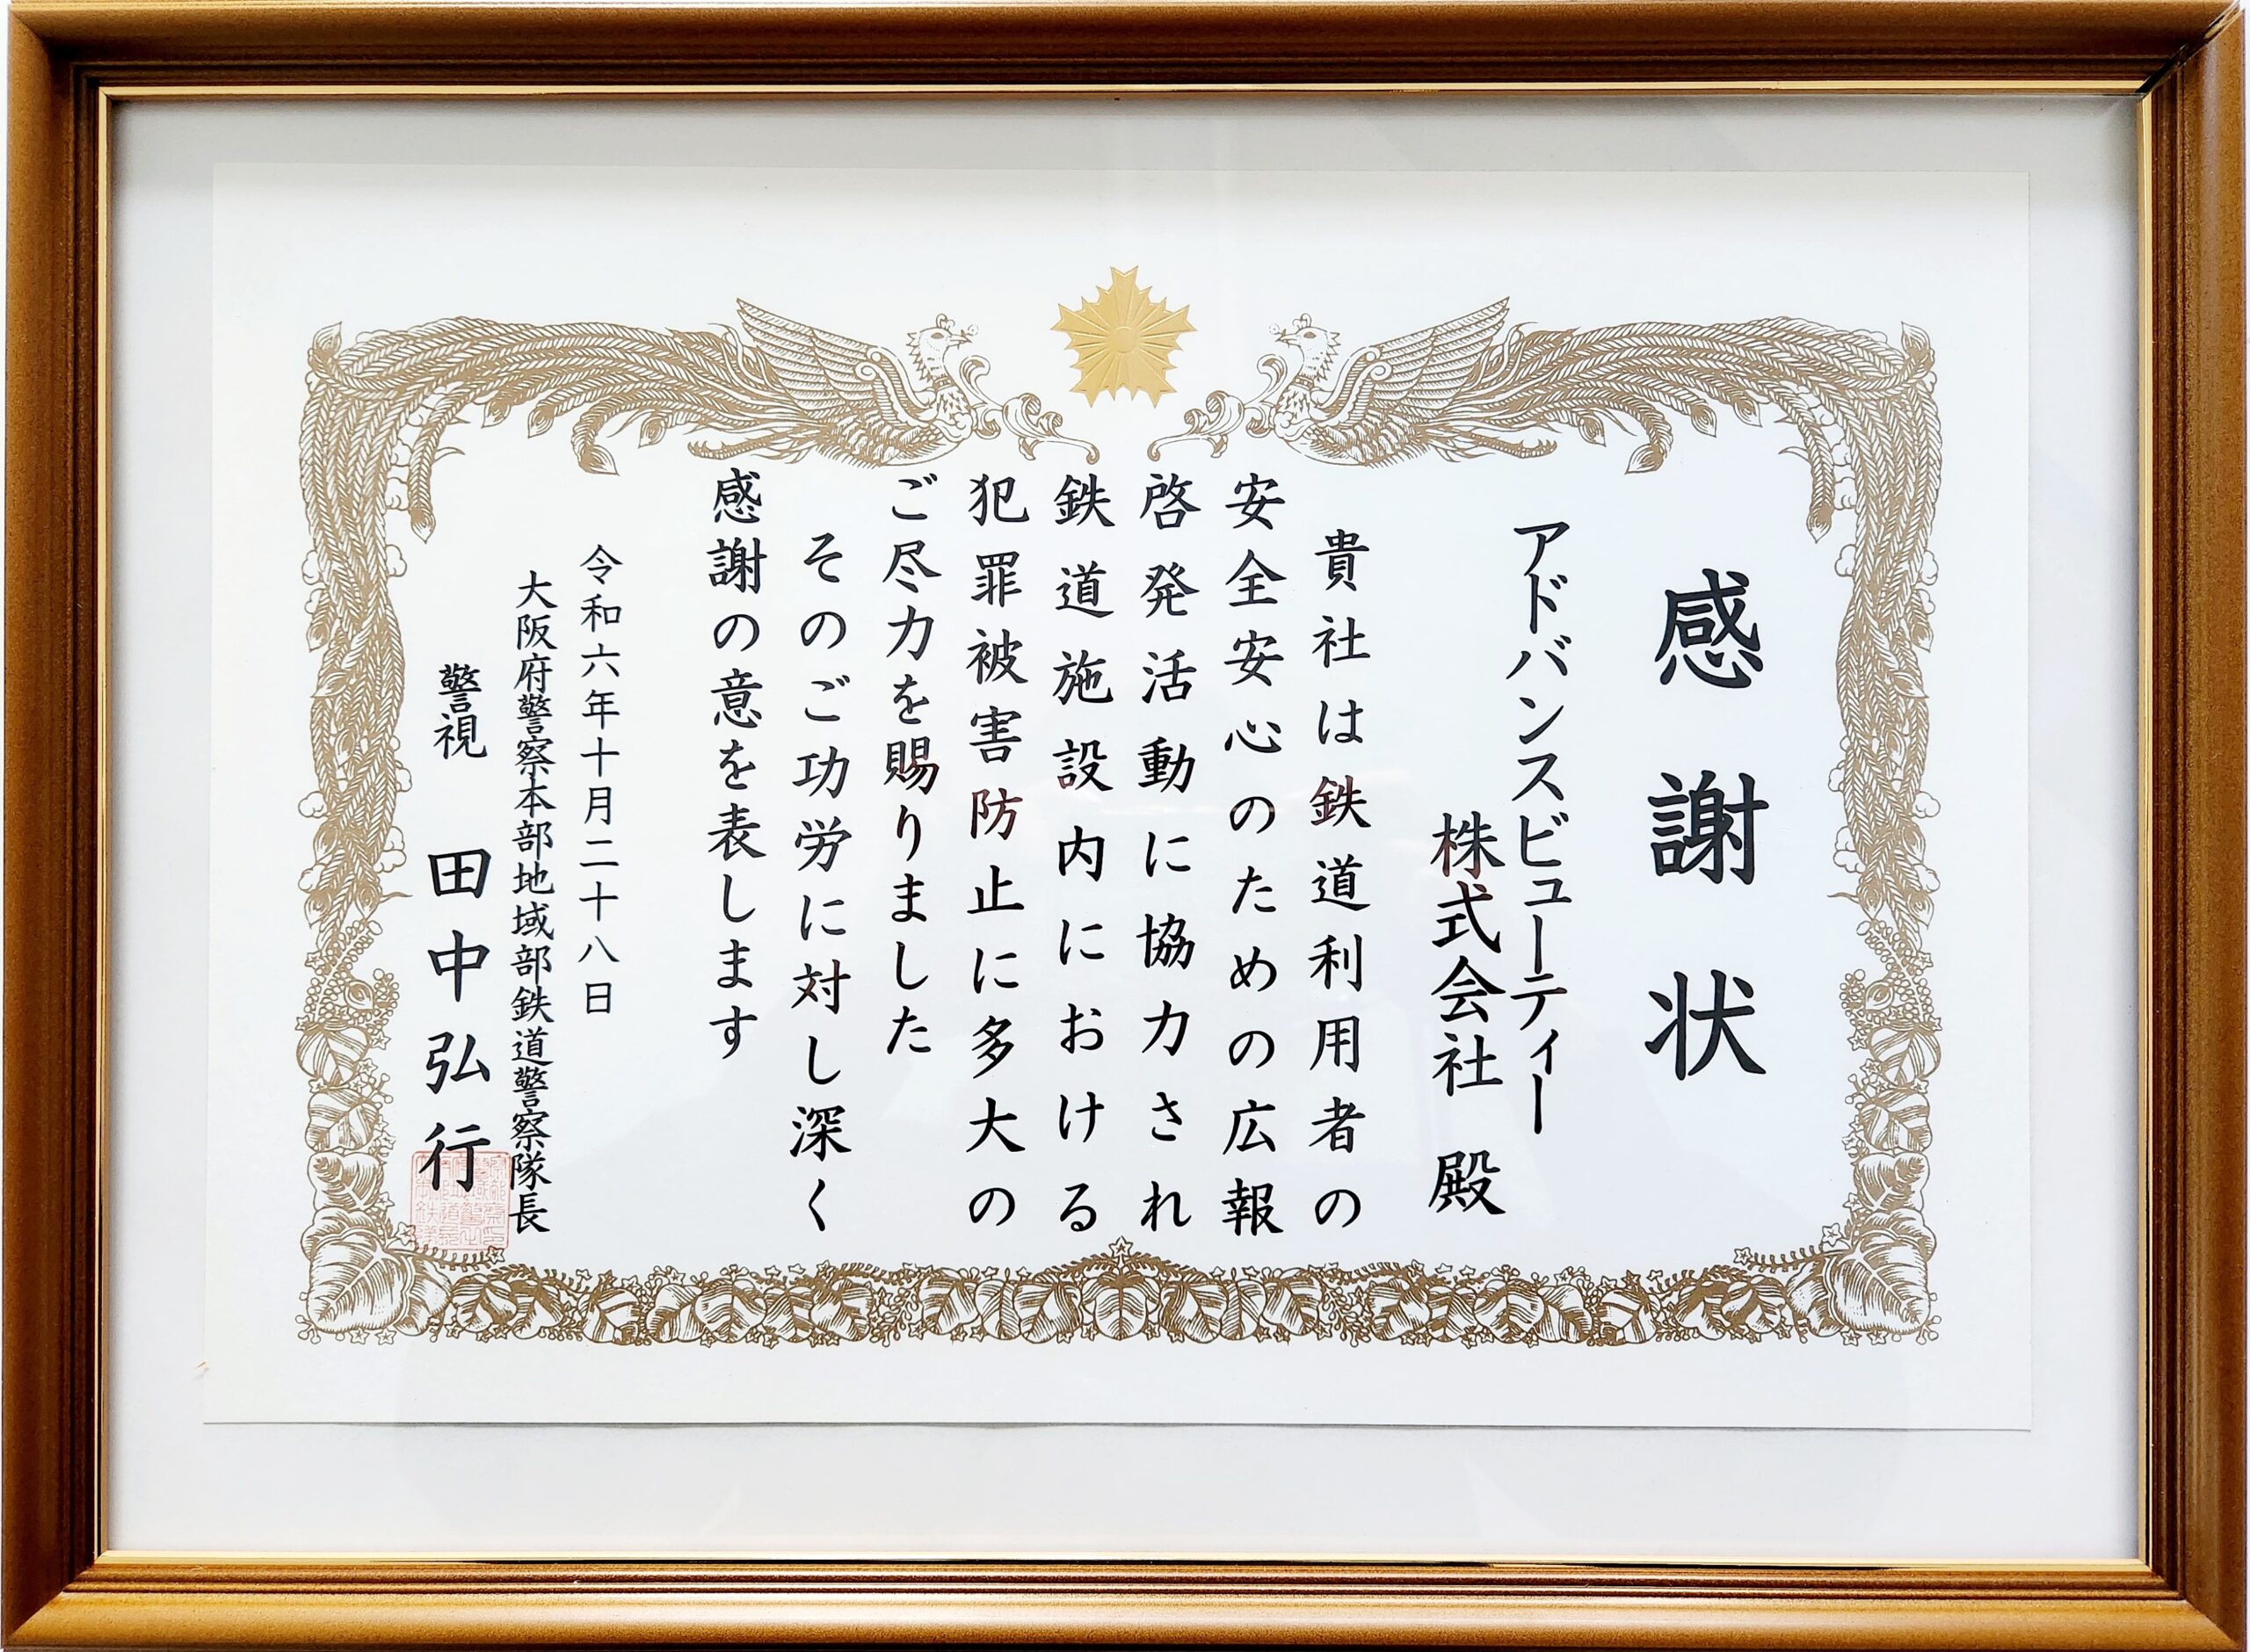 感謝状
アドバンスビューティー
株式会社 殿
貴社は鉄道利用者の
安全安心のための広報
啓発活動に協力され
鉄道施設内における
犯罪被害防止に多大の
ご尽力を賜りました
そのご功労に対し深く
感謝の意を表します
令和六年十月二十八日
大阪府警察本部地域部鉄道警察隊長
警視 田中弘行